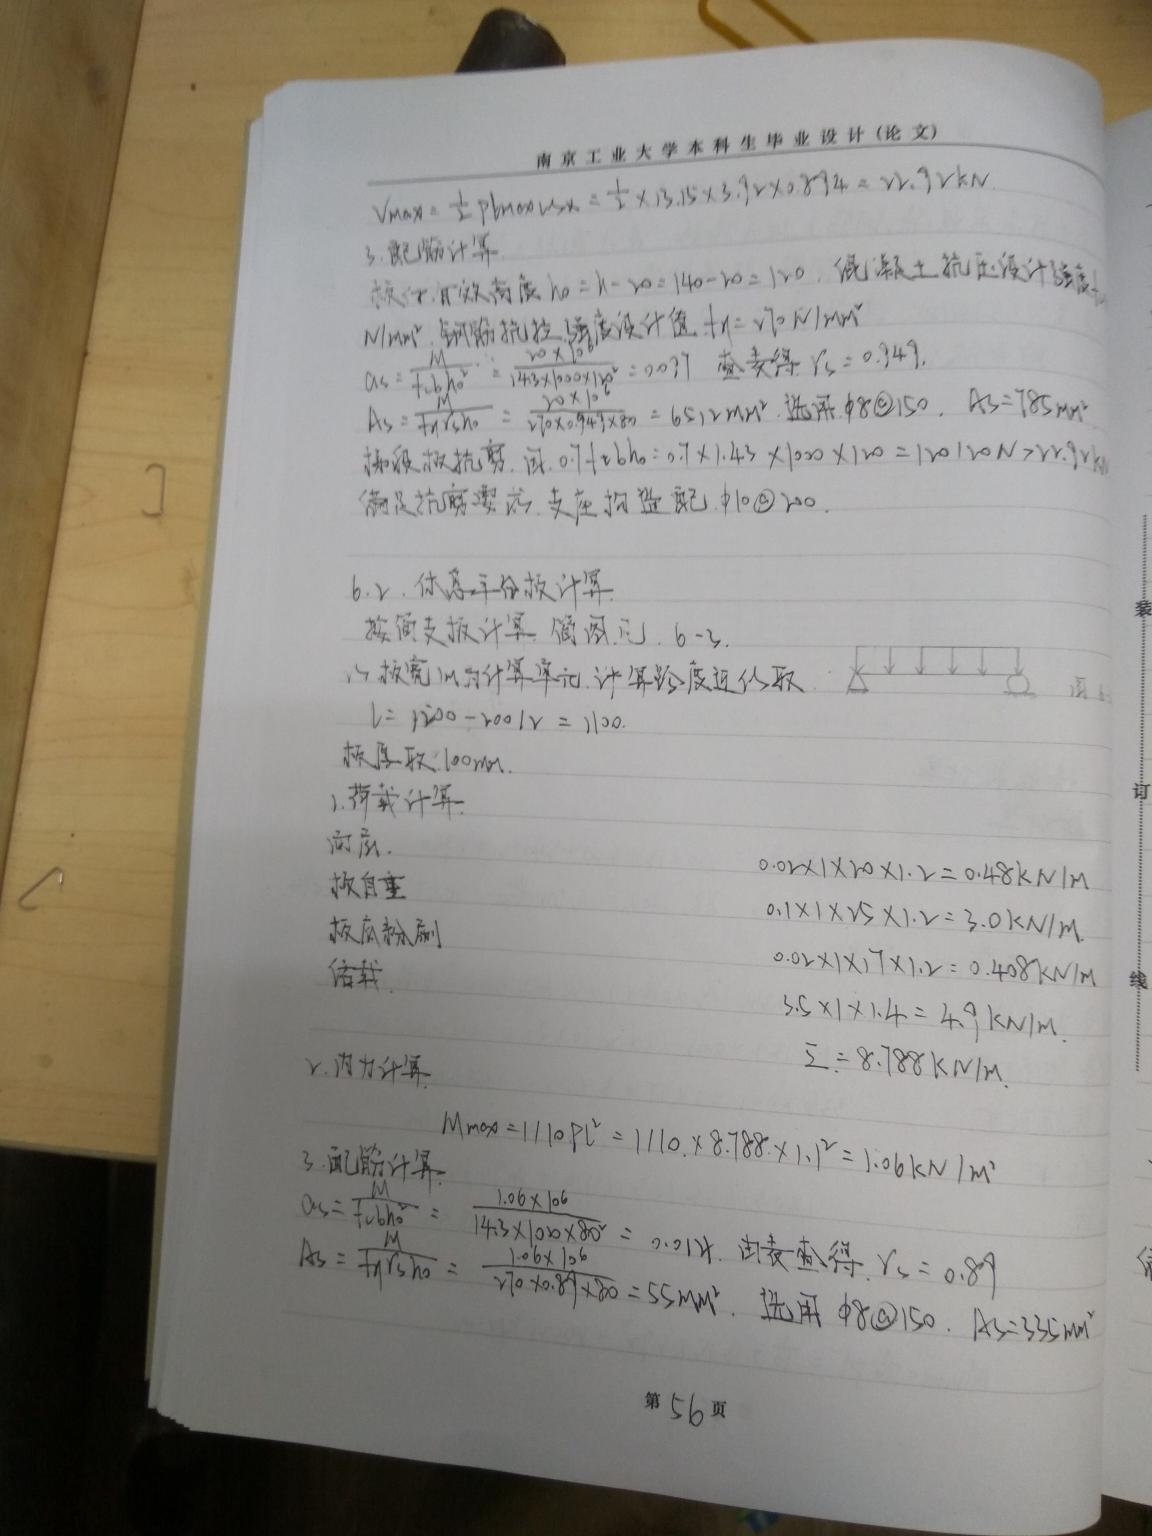 南京工业大学本科生毕业设计(论文)
Vmax = ½ plmax cosα = ½ × 13.15 × 3.92 × 0.894 = 22.92kN
3.配筋计算
板的有效高度 h₀ = h-20 = 140-20 = 120. 混凝土抗压设计强度
N/mm². 钢筋抗拉强度设计值 fy = 270 N/mm²
αs = M/fcbh₀² = 20×10⁶/14.3×1000×120² = 0.097 查表得 rs = 0.949.
As = M/fyrsh₀ = 20×10⁶/270×0.949×80 = 651.2mm². 选用 φ8@150. As = 785mm²
梯段板抗剪. 因 0.7ftbh₀ = 0.7×1.43×1000×120 = 120120N > 22.92kN
满足抗剪要求. 支座构造配 φ10@200.
6.2. 休息平台板计算.
按简支板计算. 简图见 6-3.
以板宽1m为计算单元. 计算跨度近似取
图6
l = 1200-200/2 = 1100.
板厚取100mm.
1.荷载计算.
面层. 0.02×1×20×1.2 = 0.48kN/m
板自重 0.1×1×25×1.2 = 3.0kN/m.
板底粉刷 0.02×1×17×1.2 = 0.408kN/m
活载. 3.5×1×1.4 = 4.9kN/m.
Σ = 8.788kN/m.
2.内力计算.
Mmax = 1/10Pl² = 1/10.×8.788×1.1² = 1.06kN/m²
3.配筋计算.
αs = M/fcbh₀² = 1.06×10⁶/14.3×1000×80² = 0.012. 由表查得. rs = 0.89
As = M/fyrsh₀ = 1.06×10⁶/270×0.89×80 = 55mm². 选用 φ8@150. As=335mm²
第56页
装
订
线